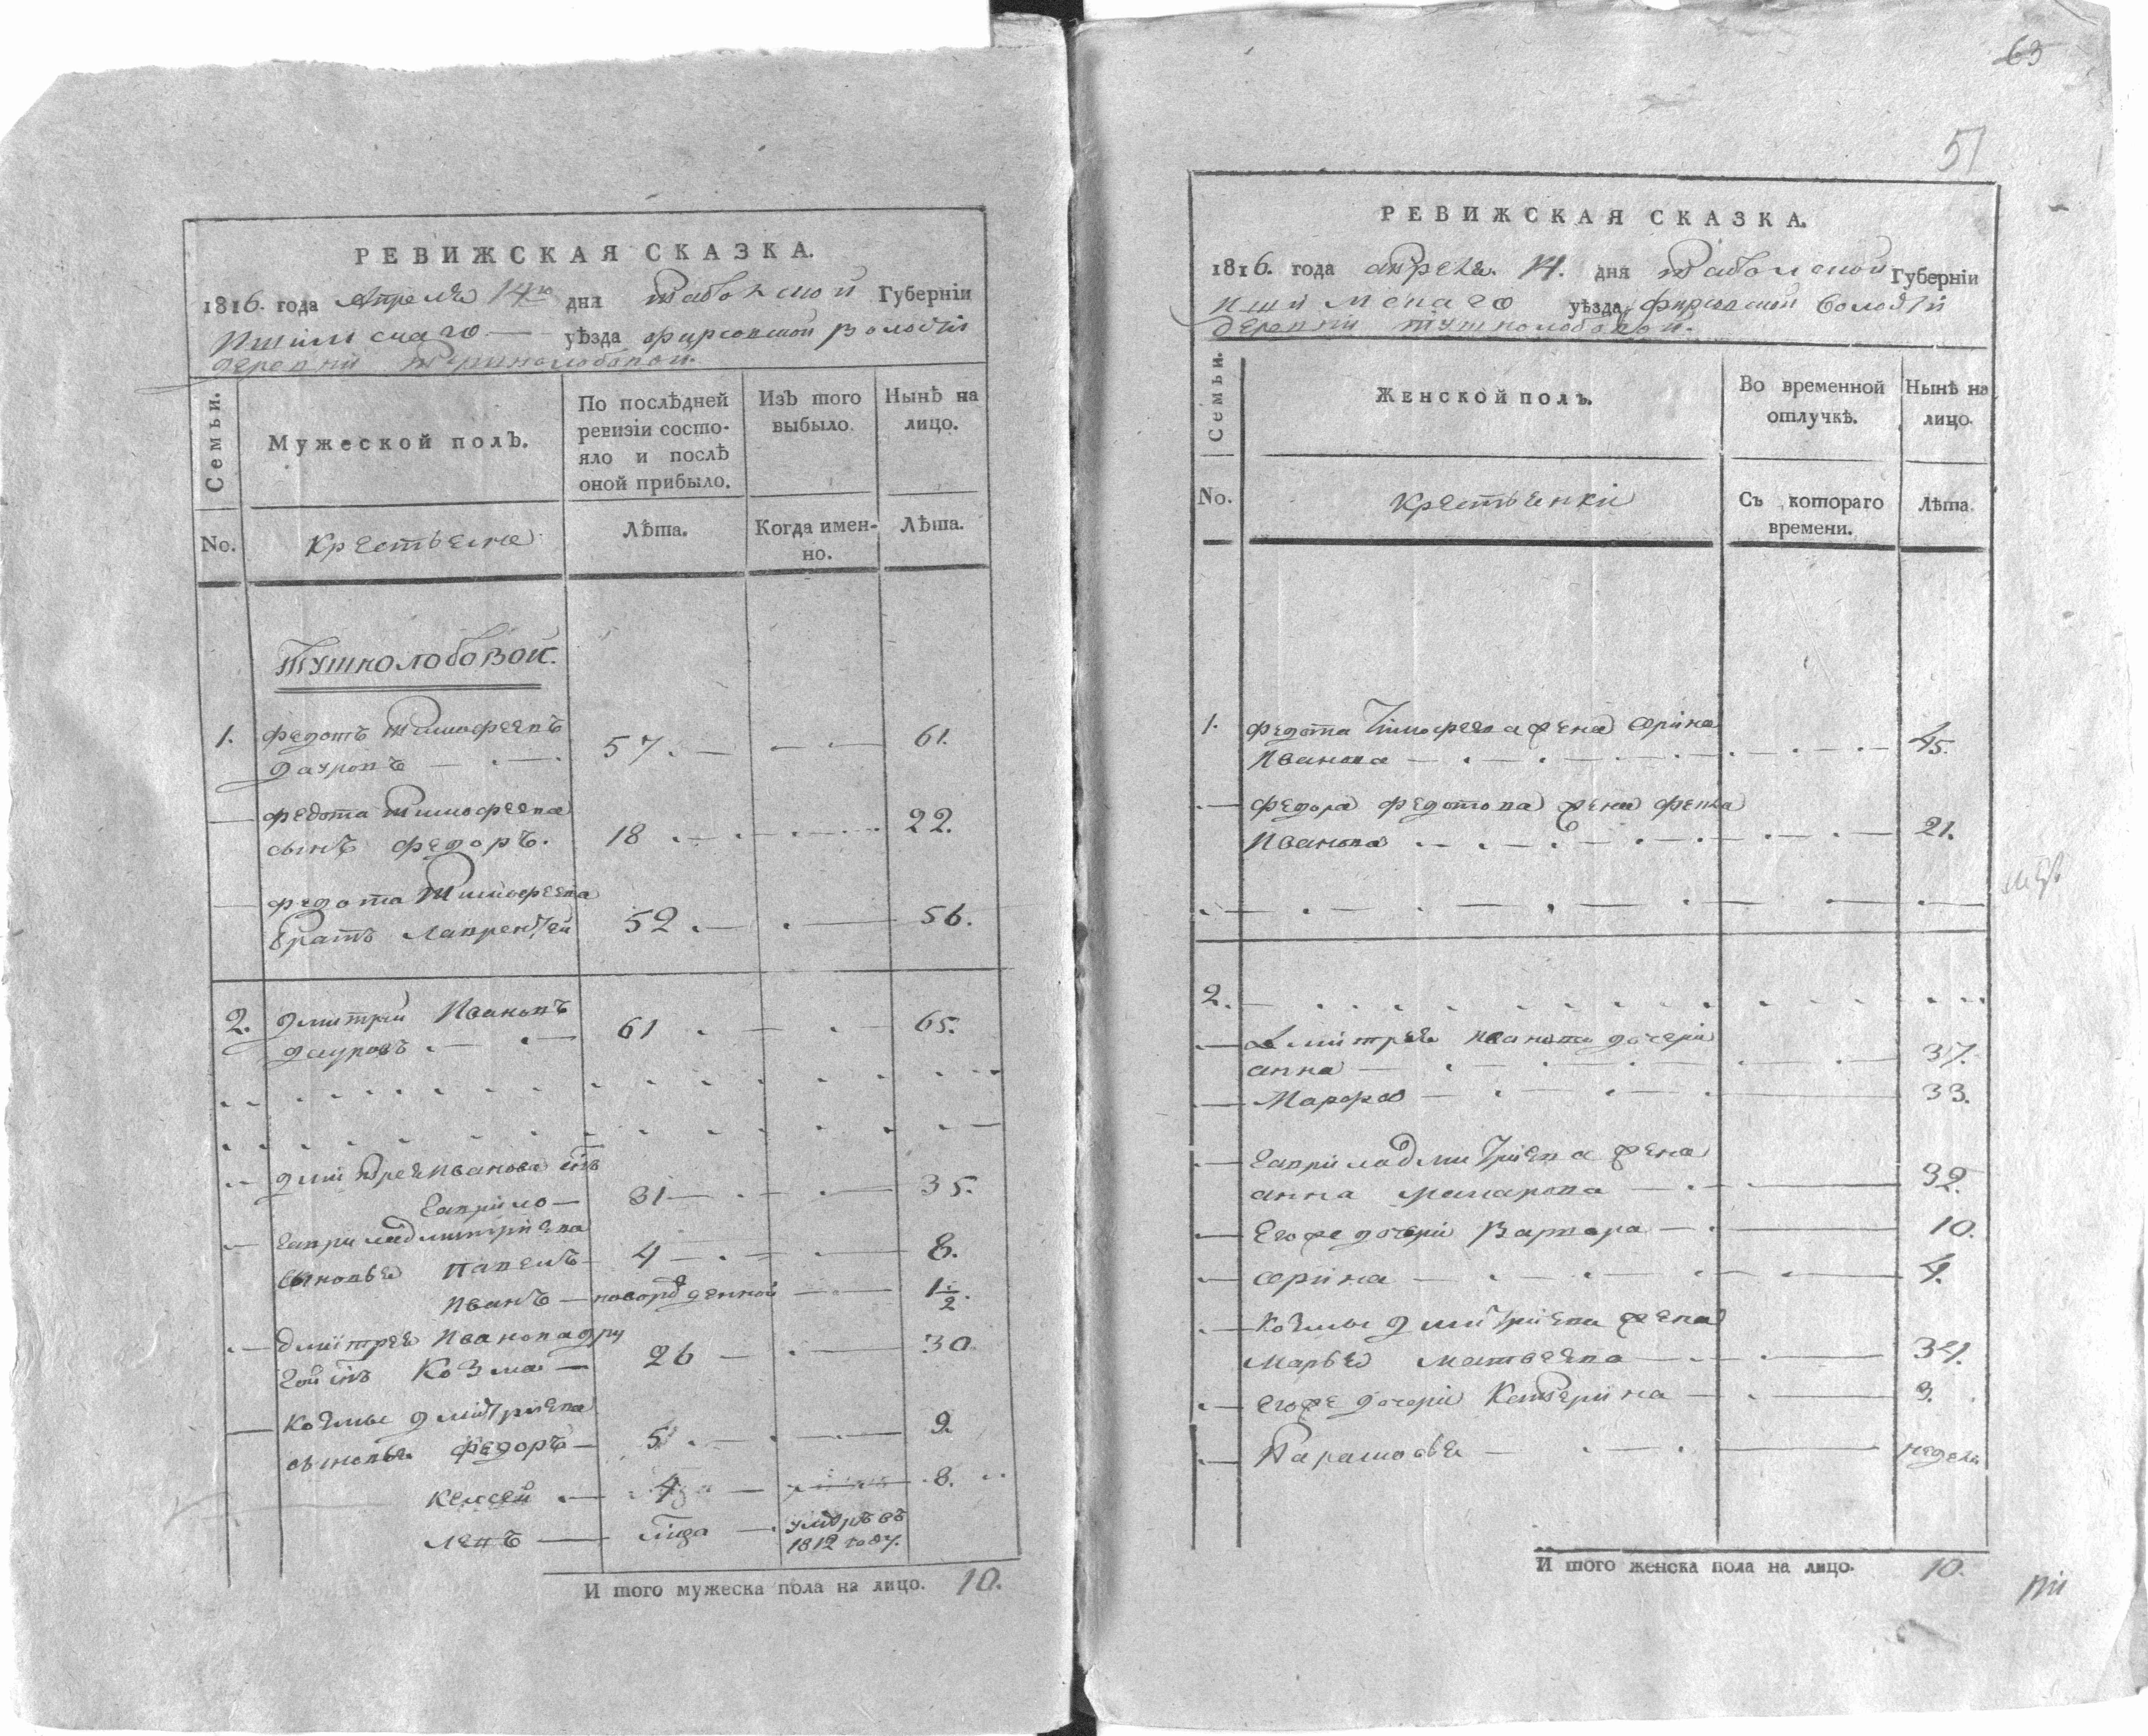 РЕВИЖСКАЯ СКАЗКА.
1816. года Апреля 14го дня Табольской Губерніи
Ишимскаго — уѣзда фирсовской волости
деревни Тушнолобовой.
Семьи.
Мужеской полЪ.
По послѣдней ревизіи состояло и послѣ оной прибыло.
ИзЪ того выбыло.
Нынѣ на лицо.
No.
Крестьяне
Лѣта.
Когда именно.
Лѣта.
Тушнолобовой.
1. федотъ Тимофеевъ
дауровъ — 57. — 61.
федота Тимофеева
сынъ федоръ. 18 . — 22.
федота Тимофеева
братъ Лаврентей 52 . — 56.
2. дмитрий Ивановъ
дауровъ . — 61 . — 65.
дмитрея Иванова снъ
Гаврило — 31 — 35.
Гаврила дмитриева
сыновья Павелъ — 4 — 8.
Иванъ — новорожденной — 1 1/2.
дмитрея Иванова дру
гой снъ Козма — 26 — 30
Козмы дмитриева
сыновья федоръ — 5 . — 9.
. — 4 — 8.
левъ — года — умеръ въ
1812 году.
И того мужеска пола на лицо. 10.
63
51
РЕВИЖСКАЯ СКАЗКА.
1816. года апреля. 14. дня Табольской Губерніи
Ишимскаго уѣзда фирсовской волости
деревни Тушнолобовой.
Семьи.
Женской полЪ.
Во временной отлучкѣ.
Нынѣ на лицо.
No.
Крестьянки
СЪ котораго времени.
Лѣта.
1. федота Тимофеева жена Орина
Иванова — 45.
федора федотова жена фекла
Иванова 21.
2.
дмитрея Иванова дочери
анна — 37.
Марфа — 33.
Гаврила дмитриева жена
анна Макарова — 32.
Егоже дочери Варвара — 10.
Орина — 4.
Козмы дмитриева жена
Марья Матвеева — 34.
Егоже дочери Катерина — 3.
Парасковья — недели
И того женска пола на лицо. 10.